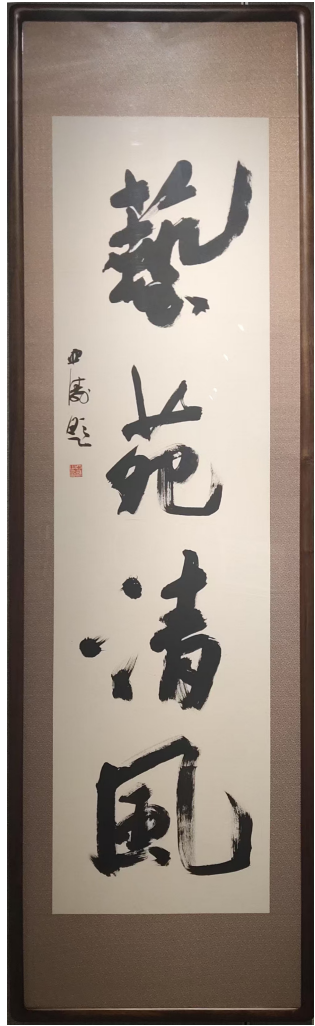 藝苑清風